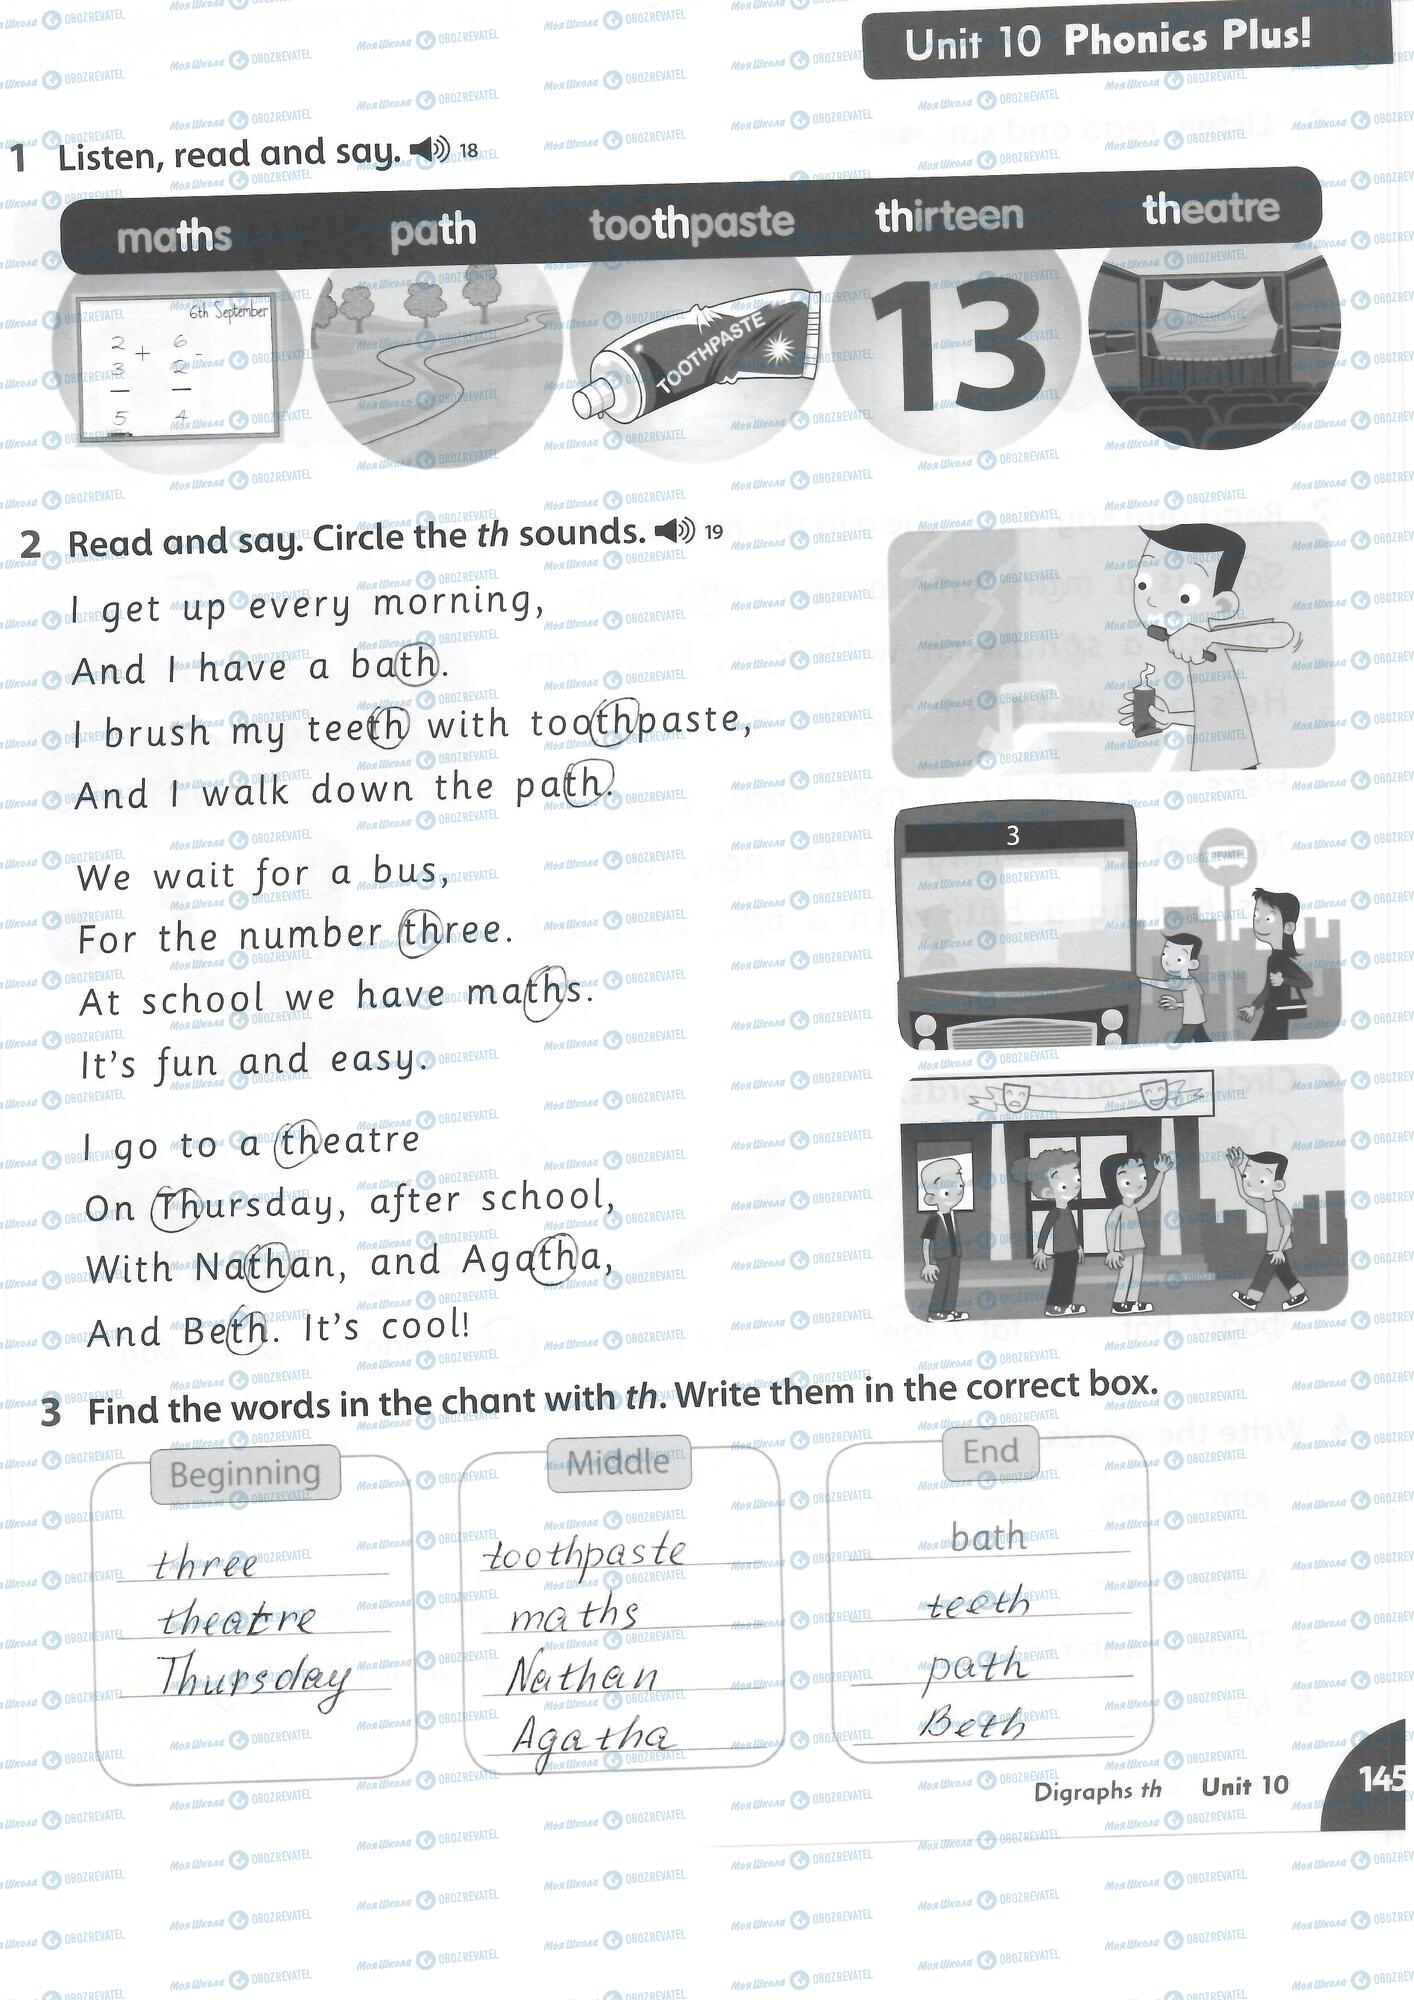 Unit 10 Phonics Plus!
1 Listen, read and say. 18
maths path toothpaste thirteen theatre
6th September
2 + 6 -
3 2
5 4
TOOTHPASTE
13
2 Read and say. Circle the th sounds. 19
I get up every morning,
And I have a bath.
I brush my teeth with toothpaste,
And I walk down the path.
3
We wait for a bus,
For the number three.
At school we have maths.
It's fun and easy.
I go to a theatre
On Thursday, after school,
With Nathan, and Agatha,
And Beth. It's cool!
3 Find the words in the chant with th. Write them in the correct box.
Beginning
three
theatre
Thursday
Middle
toothpaste
maths
Nathan
Agatha
End
bath
teeth
path
Beth
Digraphs th Unit 10 145
МояШкола OBOZREVATEL